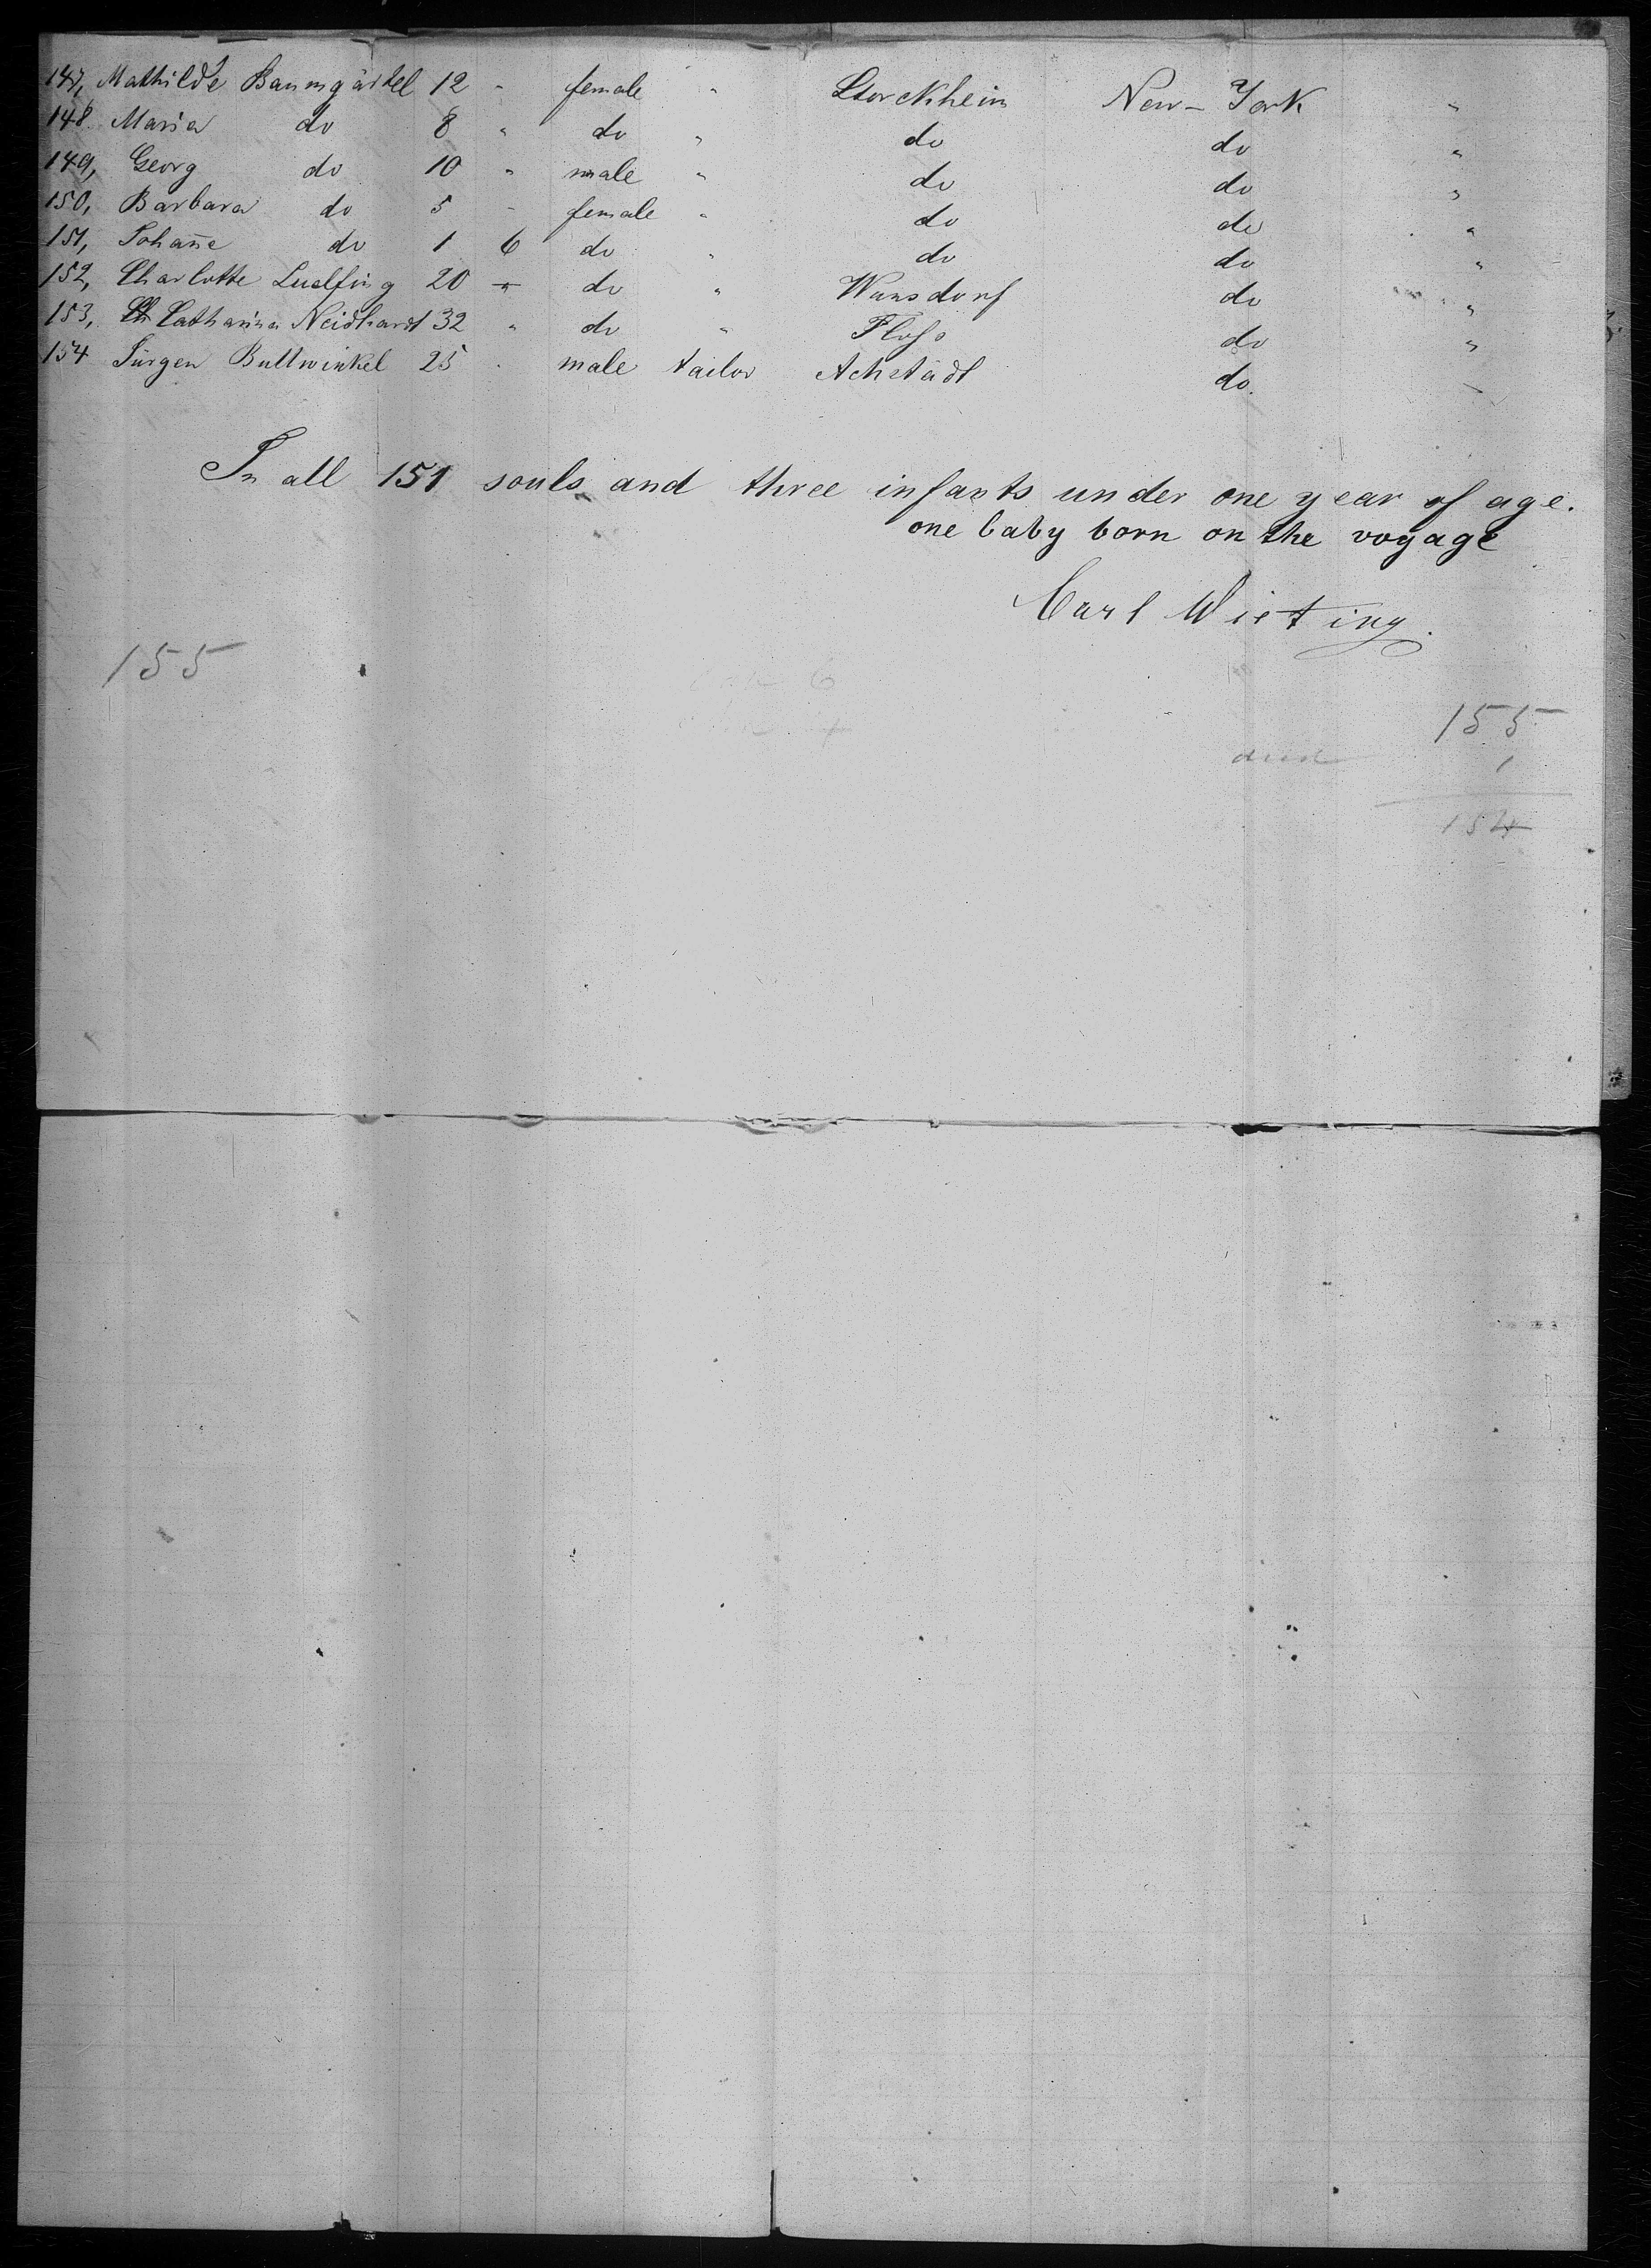 147, Mathilde Baumgärtel 12 " female " Storckheim New-York "
148. Maria do 8 " do " do do "
149, Georg do 10 " male " do do "
150, Barbara do 5 " female " do do "
151, Johan̄e do 1 6 do " do do "
152, Charlotte Luelfing 20 " do " Wunsdorf do "
153, Catharina Neidhardt 32 " do " do "
154 Jürgen Bullwinkel 25 " male tailor Achstädt do. "
In all 151 souls and three infants under one year of age.
one baby born on the voyage
Carl Wieting.
155
155
died 1
154